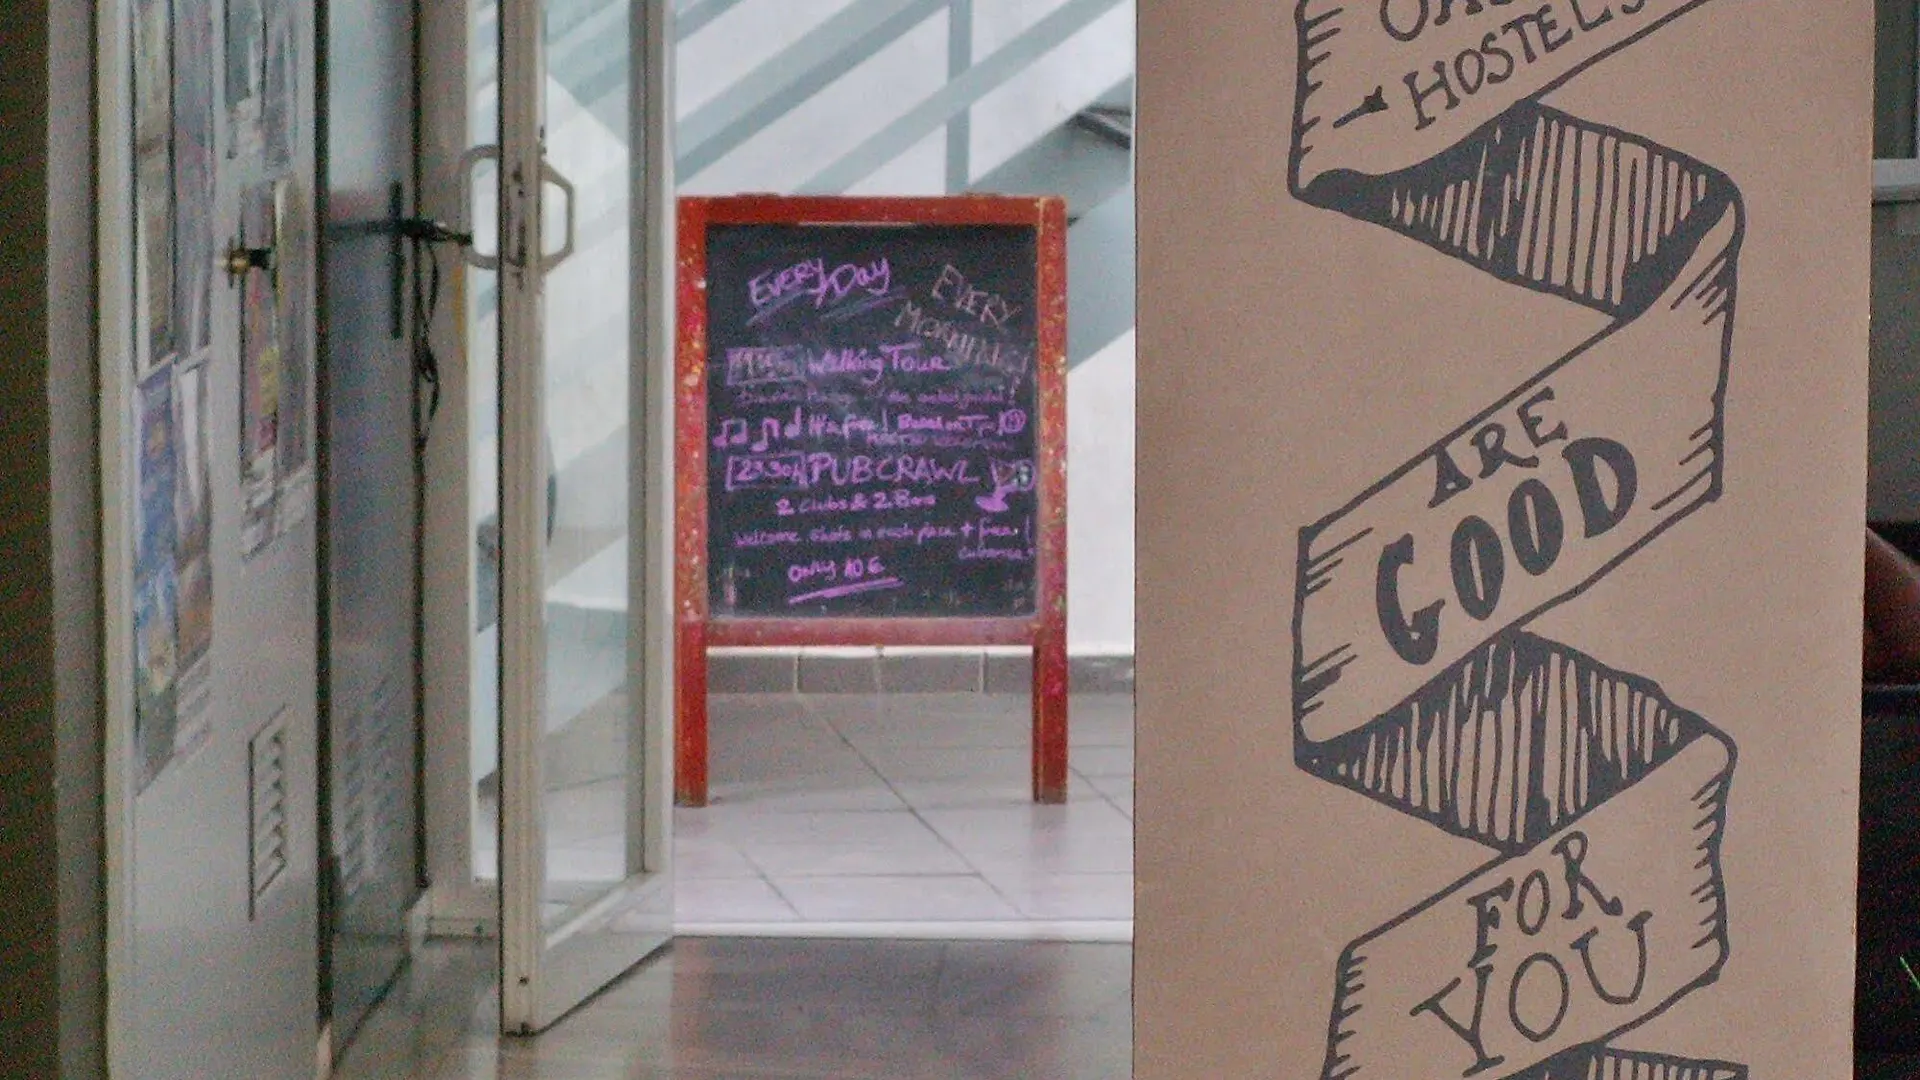 EVERY DAY
EVERY
MORNING!
Walking Tour
It's free! Based on Tips
23:30h PUBCRAWL
2 Clubs & 2 Bars
Welcome shots in each place + free
entrance
ONLY 10 €
- HOSTELS
ARE
GOOD
FOR
YOU